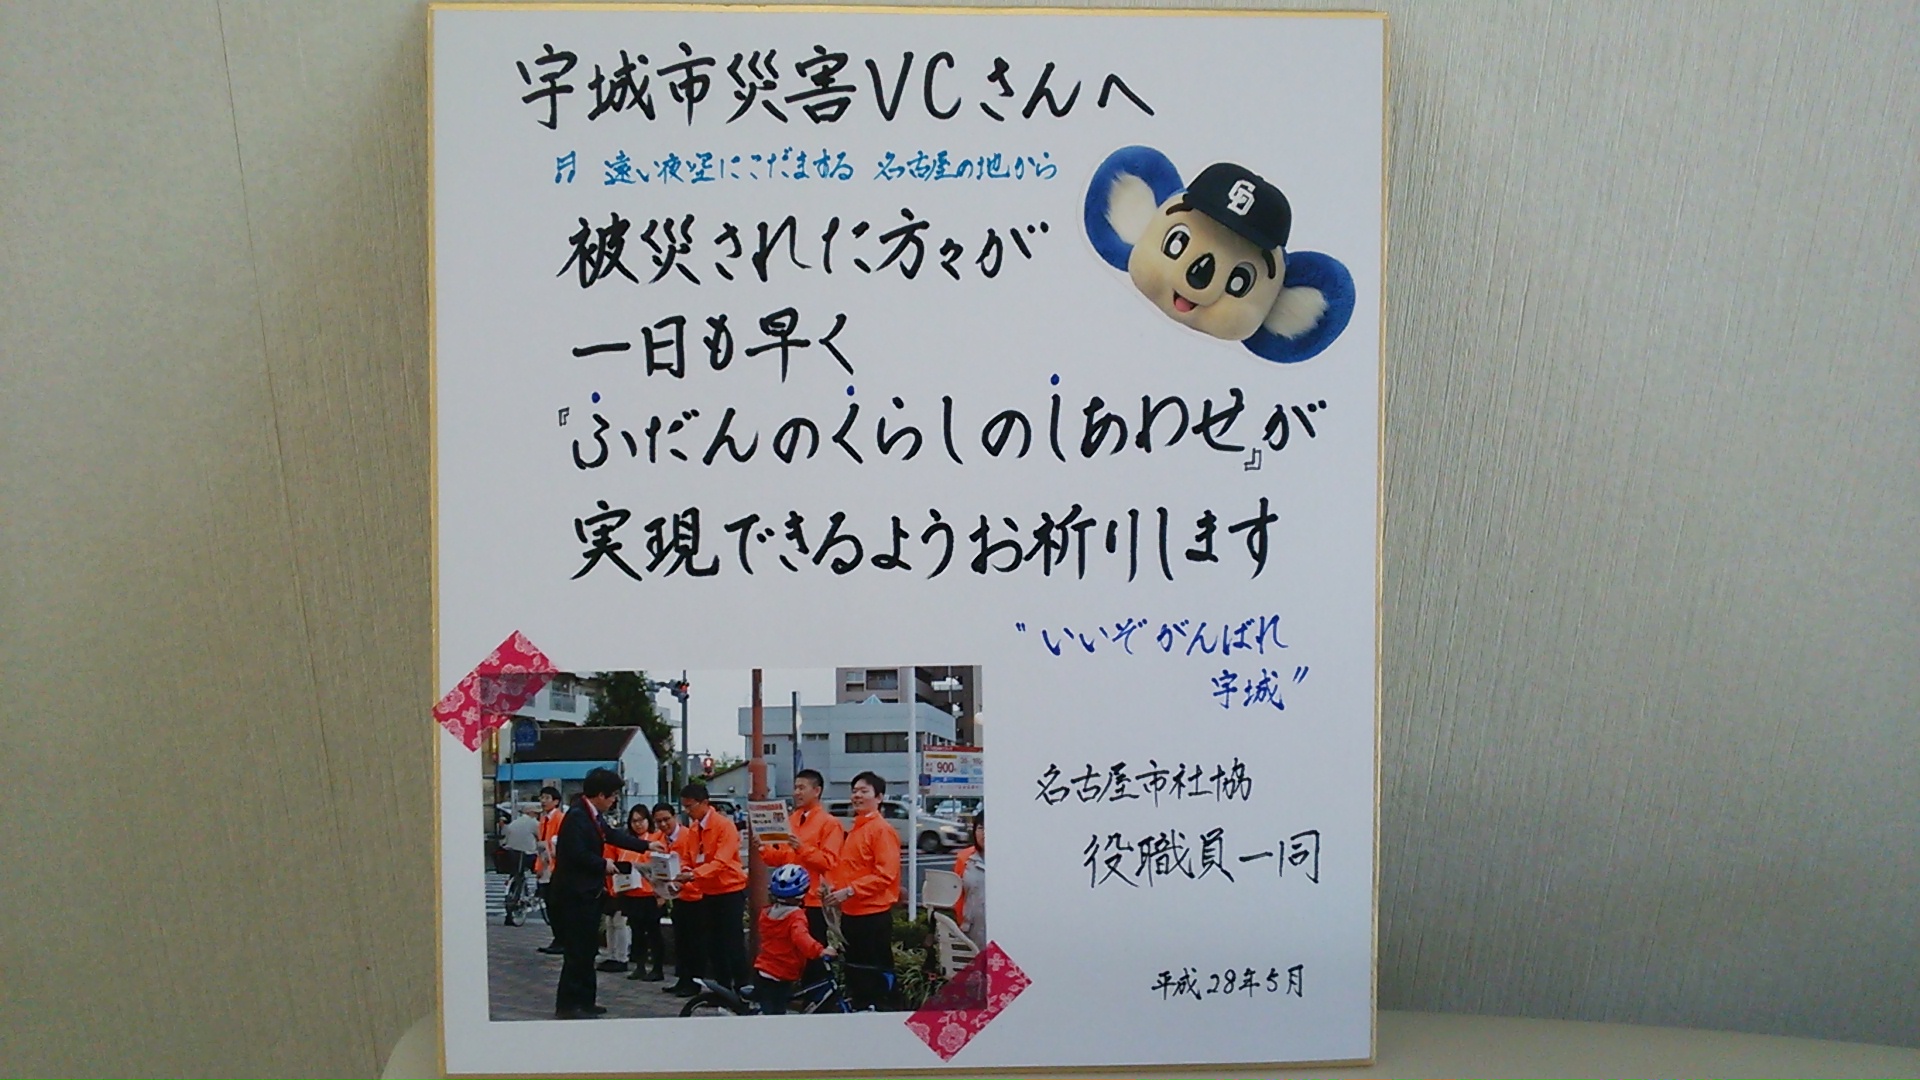 宇城市災害VCさんへ
♬ 遠い夜空にこだまする 名古屋の地から
被災された方々が
一日も早く
『ふだんのくらしのしあわせ』が
実現できるようお祈りします
CD
"いいぞがんばれ
宇城"
名古屋市社協
役職員一同
平成28年5月
900